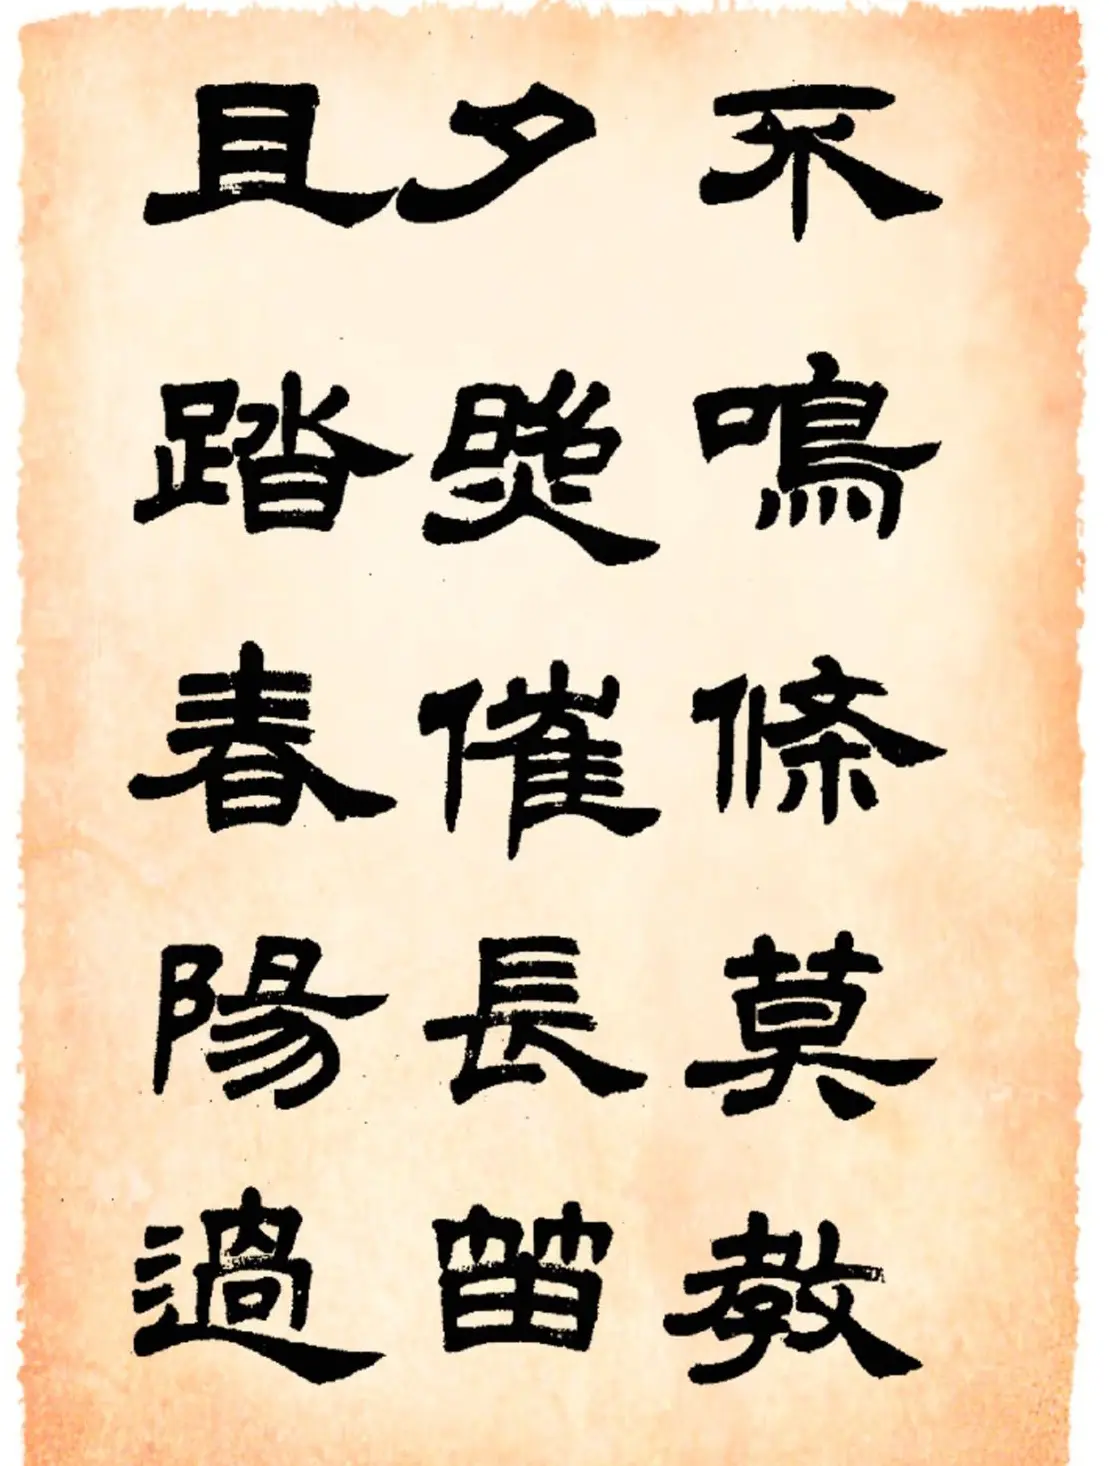 不鳴條莫教
夕照催長笛
且踏春陽過